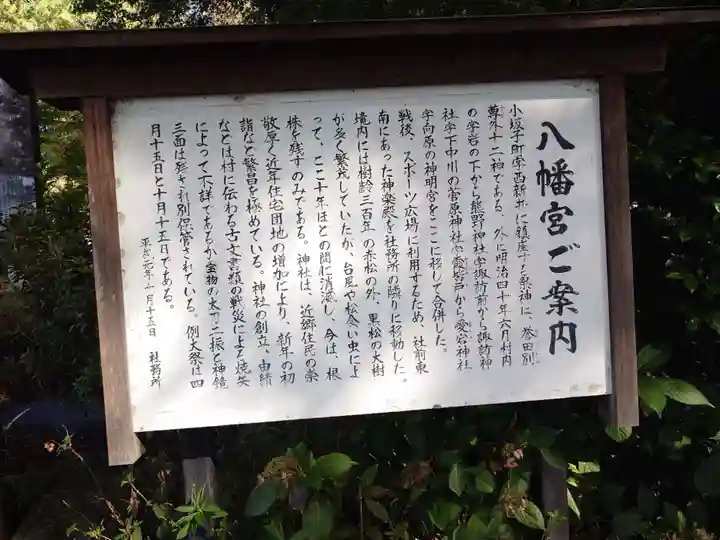 八幡宮ご案内
小坂子町字西新井に鎮座する祭神は、誉田別
尊外十二神である。外に明治四十年六月村内
の字岩の下から熊野神社字諏訪前から諏訪神
社字下中川の菅原神社や から愛宕神社
字向原の神明宮をここに移して合併した。
戦後、スポーツ広場に利用するため、社前東
南にあった神楽殿を社務所の隣りに移動した。
境内には樹齢三百年の赤松の外、黒松の大樹
が多く繁茂していたが、台風や松喰い虫によ
って、ここ十年ほどの間に消滅し、今は、根
株を残すのみである。神社は、近郷住民の崇
敬厚く近年住宅団地の増加により、新年の初
詣など繁昌を極めている。神社の創立、由緒
などは村に伝わる古文書類の戦災による焼失
によって不詳であるが宝物の太刀二振と神鏡
三面は発 され別保管されている。例大祭は四
月十五日と十月十五日である。
平成 年十月十五日 社務所